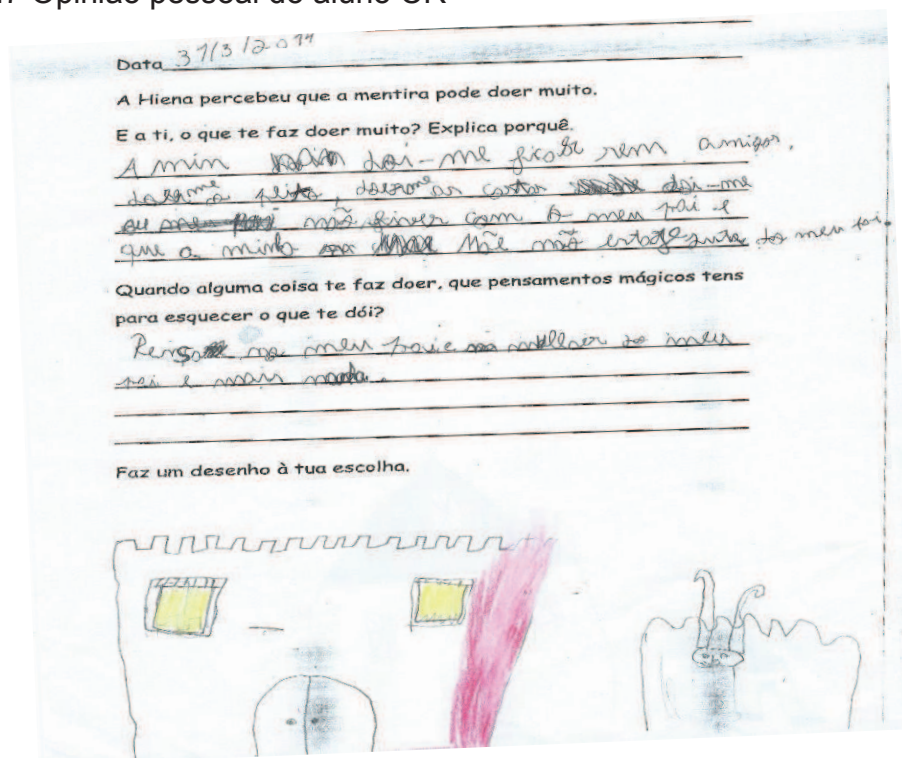 Opinião pessoal do aluno
Data 31/3/2011
A Hiena percebeu que a mentira pode doer muito.
E a ti, o que te faz doer muito? Explica porquê.
A min doi-me ficar sem amigos,
peito, as costas doi-me
não tiver com o meu pai e
que a minha Mãe não junta do meu pai.
Quando alguma coisa te faz doer, que pensamentos mágicos tens
para esquecer o que te dói?
Penso no meu pai e melhor do meu
pai e mais nada.
Faz um desenho à tua escolha.